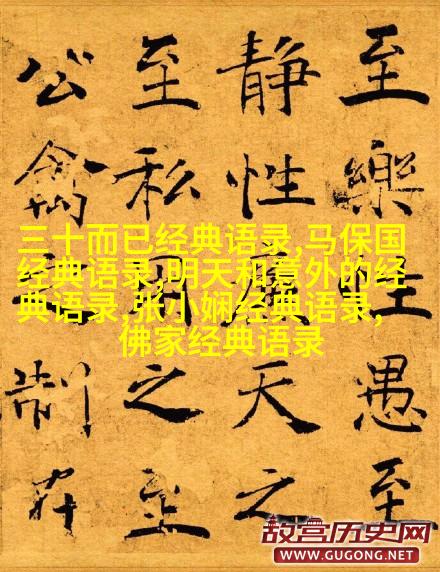 至樂性愚至
靜性天之
至私用之至
公禽制在
三十而已经典语录,马保国
经典语录,明天和意外的经
典语录,张小娴经典语录,
佛家经典语录
故宫历史网
WWW.GUGONG.NET